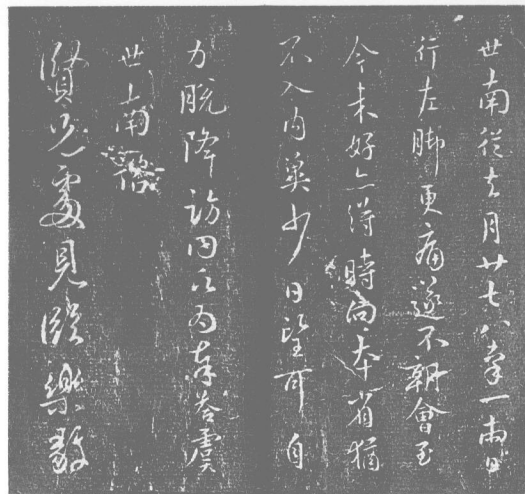 世南從去月廿七八率一兩日
行左脚更痛遂不朝會至
今未好亦得時向本省猶
不入内冀少日望可自
力脫降訪問願為奉答虞
世南諮
賢兄處見臨樂毅